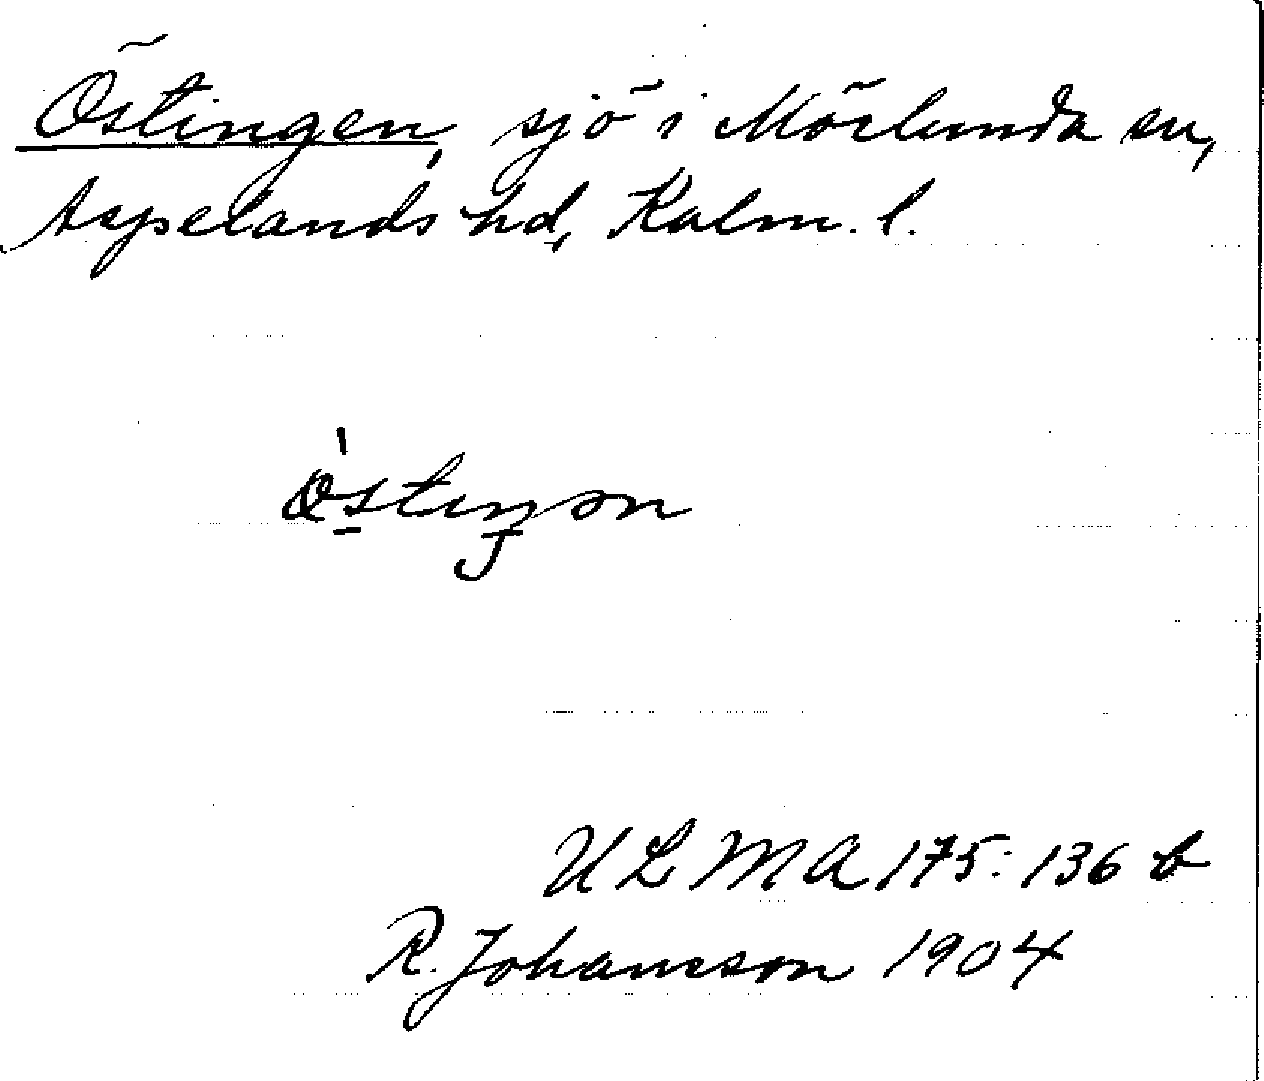 Östingen, sjö i Mörlunda sn,
Aspelands hd, Kalm. l.
ULMA 175:136 b
R. Johansson 1904